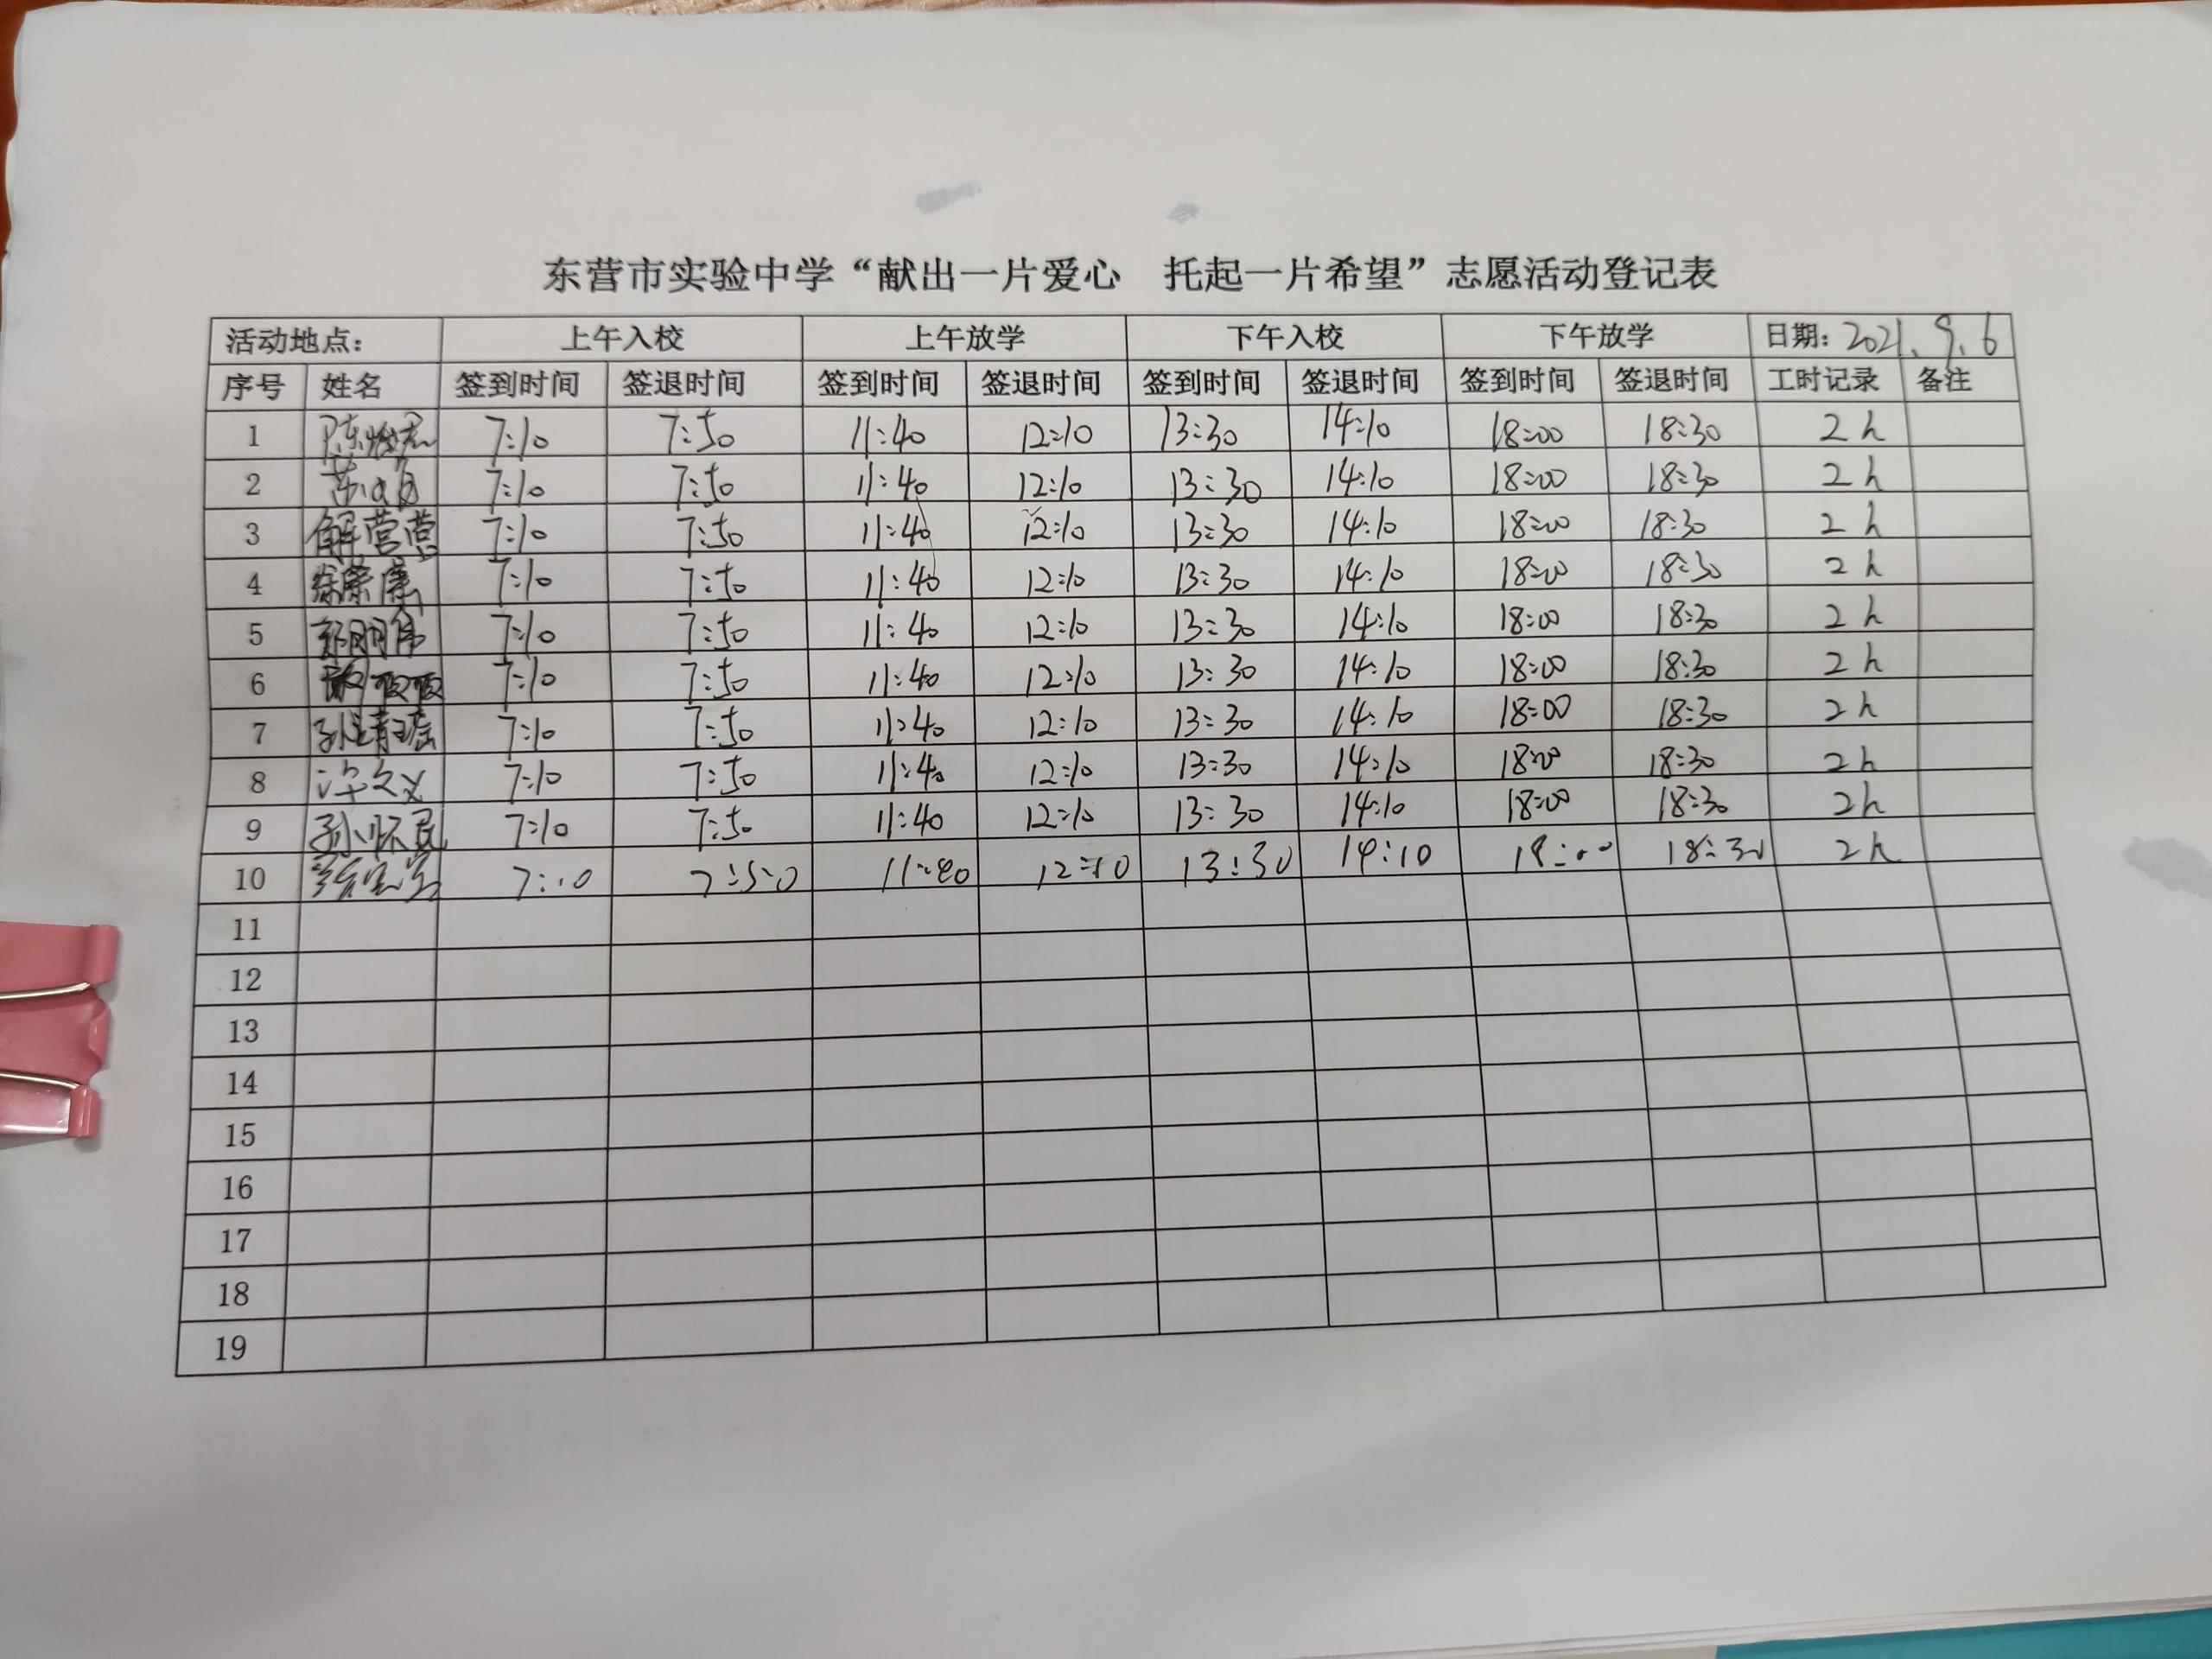 东营市实验中学“献出一片爱心 托起一片希望”志愿活动登记表
活动地点: 上午入校 上午放学 下午入校 下午放学 日期: 2021.9.6
序号 姓名 签到时间 签退时间 签到时间 签退时间 签到时间 签退时间 签到时间 签退时间 工时记录 备注
1 7:10 7:50 11:40 12:10 13:30 14:10 18:00 18:30 2h
2 7:10 7:50 11:40 12:10 13:30 14:10 18:00 18:30 2h
3 解营营 7:10 7:50 11:40 12:10 13:30 14:10 18:00 18:30 2h
4 7:10 7:50 11:40 12:10 13:30 14:10 18:00 18:30 2h
5 7:10 7:50 11:40 12:10 13:30 14:10 18:00 18:30 2h
6 7:10 7:50 11:40 12:10 13:30 14:10 18:00 18:30 2h
7 孙靖瑶 7:10 7:50 11:40 12:10 13:30 14:10 18:00 18:30 2h
8 许文义 7:10 7:50 11:40 12:10 13:30 14:10 18:00 18:30 2h
9 孙怀民 7:10 7:50 11:40 12:10 13:30 14:10 18:00 18:30 2h
10 7:10 7:50 11:40 12:10 13:30 14:10 18:00 18:30 2h
11
12
13
14
15
16
17
18
19